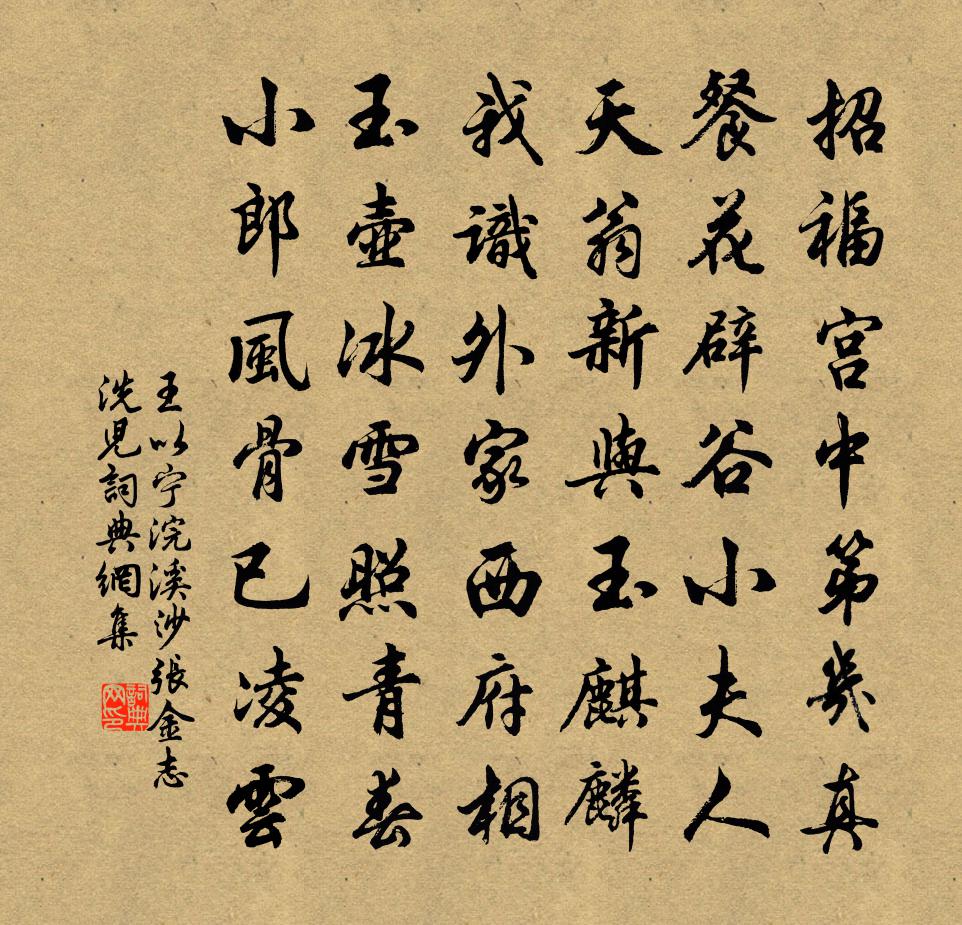 招福宫中第幾真
餐花辟谷小夫人
天翁新與玉麒麟
我識外家西府相
玉壺冰雪照青春
小郎風骨已凌雲
王以宁浣溪沙張金志
洗児詞典網集
詞典网印